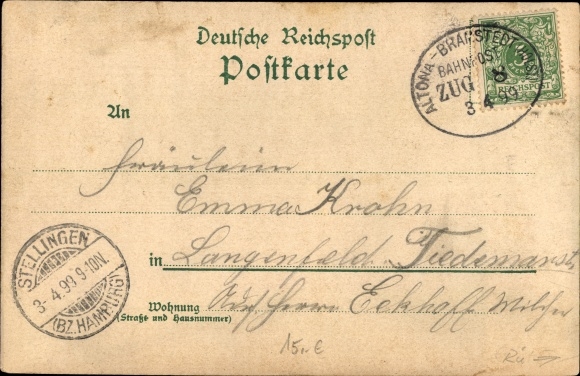 Deutsche Reichspost
Postkarte
ALTONA-BRAMSTEDT
BAHNPOST
ZUG 8
3 4 99
REICHSPOST
An
Fräulein
Emma Krohn
in Langenfeld Tiedemanstr
STELLINGEN
3 4.99 9-10N.
(BZ. HAMBURG)
Wohnung
(Straße und Hausnummer)
Herrn Eckhoff
15,-€